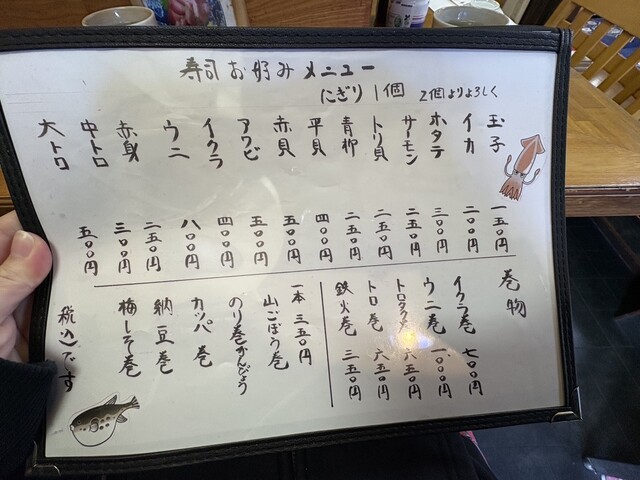 寿司お好みメニュー
にぎり1個 2個よりよろしく
玉子 一五〇円
イカ 二〇〇円
ホタテ 三〇〇円
サーモン 二五〇円
トリ貝 二五〇円
青柳 二五〇円
平貝 四〇〇円
赤貝 五〇〇円
アワビ 五〇〇円
イクラ 四〇〇円
ウニ 八〇〇円
赤身 二五〇円
中トロ 三〇〇円
大トロ 五〇〇円
巻物
イクラ巻 七〇〇円
ウニ巻 一、〇〇〇円
トロタク巻 六五〇円
トロ巻 六五〇円
鉄火巻 三五〇円
一本 三五〇円
山ごぼう巻
のり巻かんぴょう
カッパ巻
納豆巻
梅しそ巻
税込です